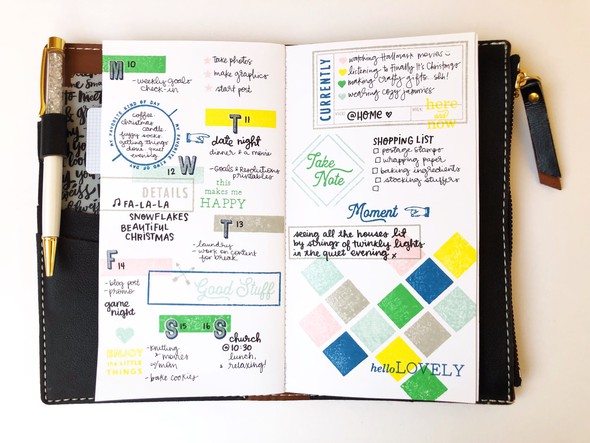 M 10
-weekly goals
check-in
take photos
make graphics
start post
MY FAVORITE KIND OF DAY
coffee
christmas
candle
fuzzy socks
getting things
done
quiet
evening
T 11
date night
dinner + a movie
12 W
-Goals & Resolutions
printables
DETAILS
FA-LA-LA
this
makes me
HAPPY
SNOWFLAKES
BEAUTIFUL
CHRISTMAS
T 13
-laundry
-work on content
for break
F 14
-blog post
-promo
game
night
Good Stuff
S 15 16 S
ENJOY
THE LITTLE
THINGS
-knitting
& movies
w/mom
-bake cookies
church
@ 10:30
lunch,
& relaxing!
CURRENTLY
watching Hallmark movies
listening to Finally It's Christmas
making crafty gifts. shh!
wearing cozy jammies
@HOME
here
and
now
Take
Note
SHOPPING LIST
postage stamps
wrapping paper
baking ingredients
stocking stuffers
Moment
seeing all the houses lit
by strings of twinkly lights
in the quiet evening
hello LOVELY